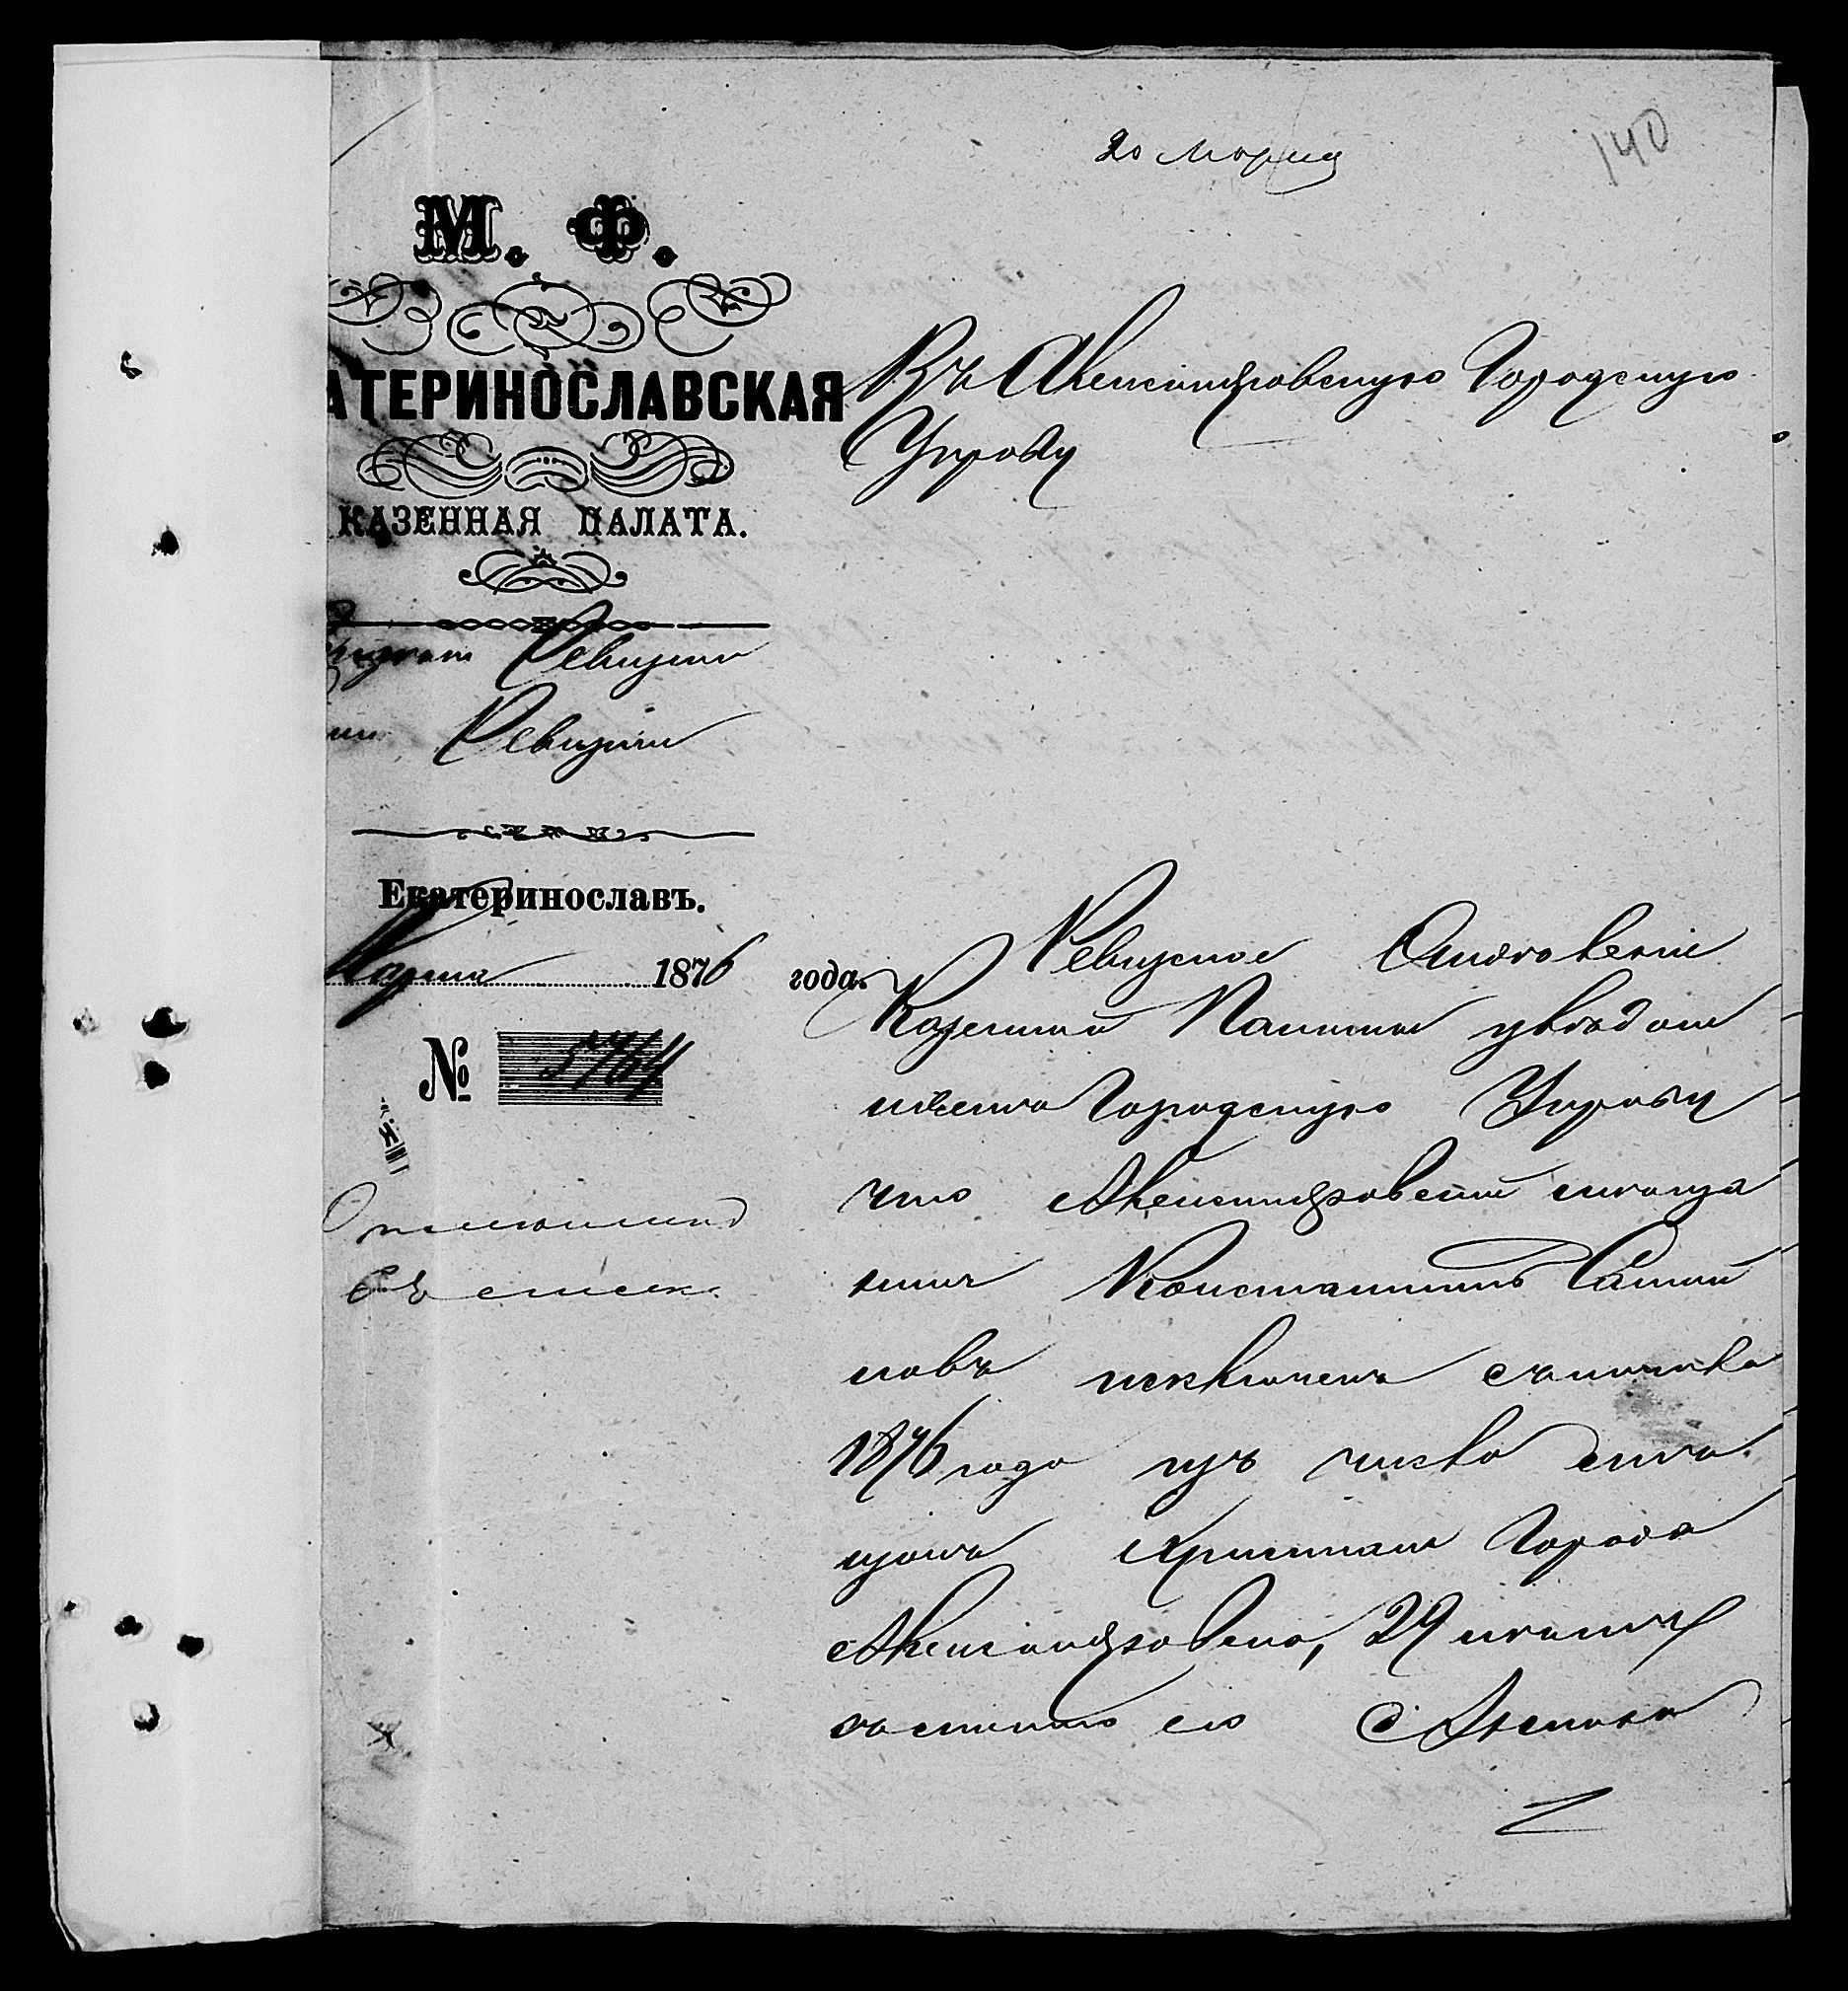 20 Марта
140
М. Ф.
АТЕРИНОСЛАВСКАЯ
КАЗЕННАЯ ПАЛАТА.
Ревизии
Ревизии
Екатеринославъ.
Марта 1876 года.
№ 5764
Въ Александровскую Городскую
Управу
Ревизское Отдѣленіе
Казенной Палаты увѣдом
ляетъ Городскую Управу
что Александровскій мѣща
нинъ Константинъ
новъ исключенъ съ
1876 года изъ числа мѣ
щанъ Христіан Города
Александровска, 29
его
Отмѣтить
въ списк.